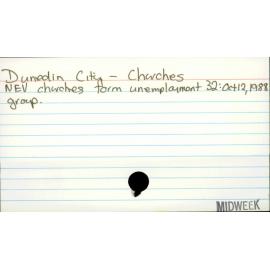 Dunedin City - Churches
NEV churches form unemployment 32: Oct 12, 1988
group.
MIDWEEK